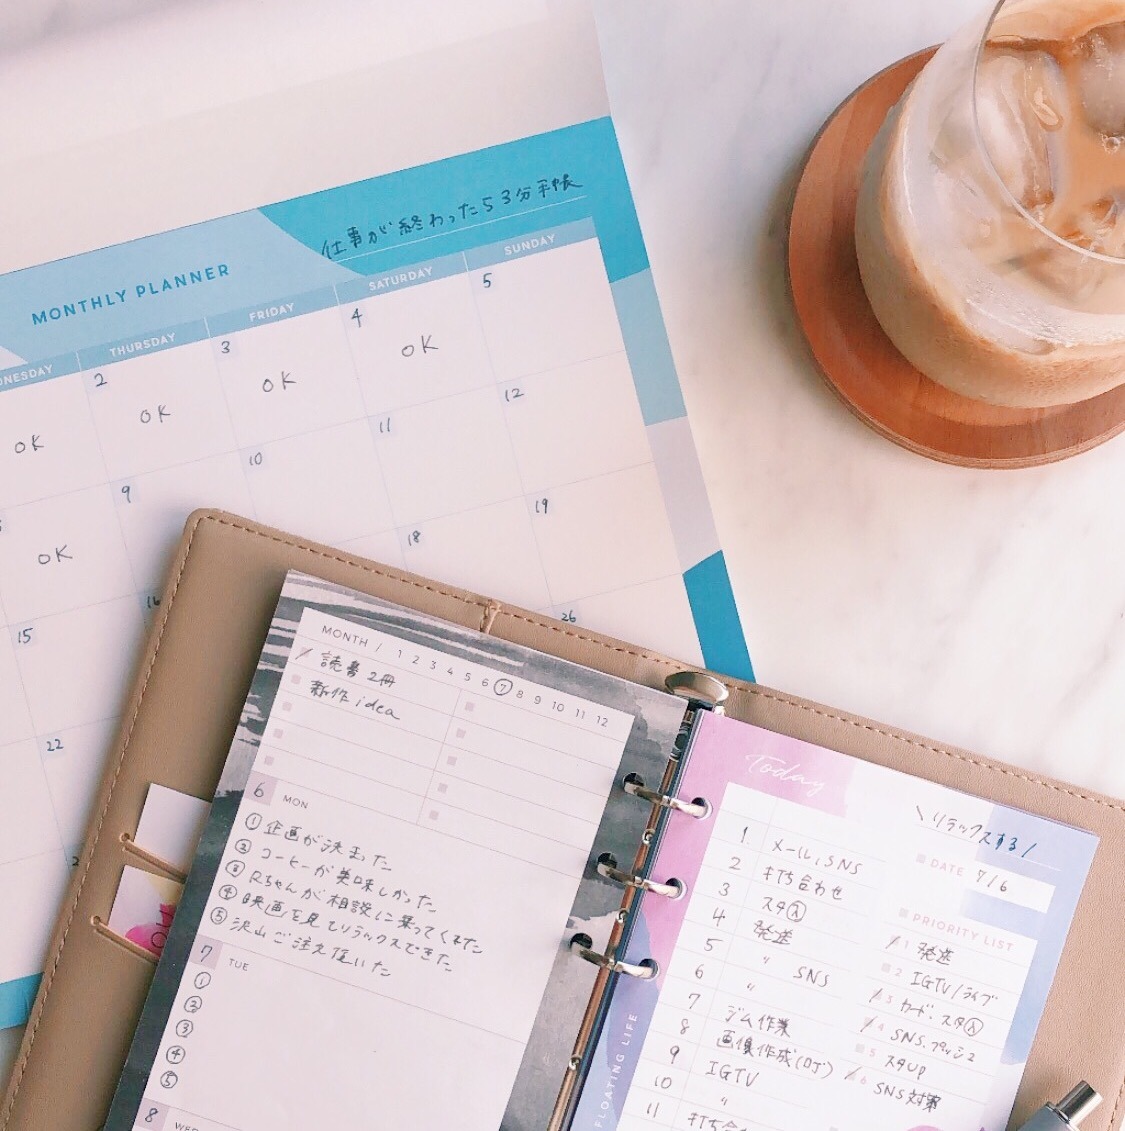 仕事が終わったら3分手帳
MONTHLY PLANNER
NESDAY THURSDAY FRIDAY SATURDAY SUNDAY
2 3 4 5
OK OK OK OK
9 10 11 12
OK
15 16 18 19
22 26
MONTH / 1 2 3 4 5 6 ⑦ 8 9 10 11 12
読書2冊
新作idea
6 MON
① 企画が決まった
② コーヒーが美味しかった
③ Rちゃんが相談に乗ってくれた
④ 映画を見てリラックスできた
⑤ 沢山ご注文頂いた
7 TUE
①
②
③
④
⑤
8 WE
Today
\リラックスする/
DATE 7/6
1 メール、SNS
2 打ち合わせ
3 スタ入
4 発送
5 〃 SNS
6 〃
7 ジム作業
8 画像作成(DJ)
9 IGTV
10 〃
11 打ち合
PRIORITY LIST
1 発送
2 IGTV/ライブ
3 カード、スタ入
4 SNS、プッシュ
5 スタUP
6 SNS対策
FLOATING LIFE